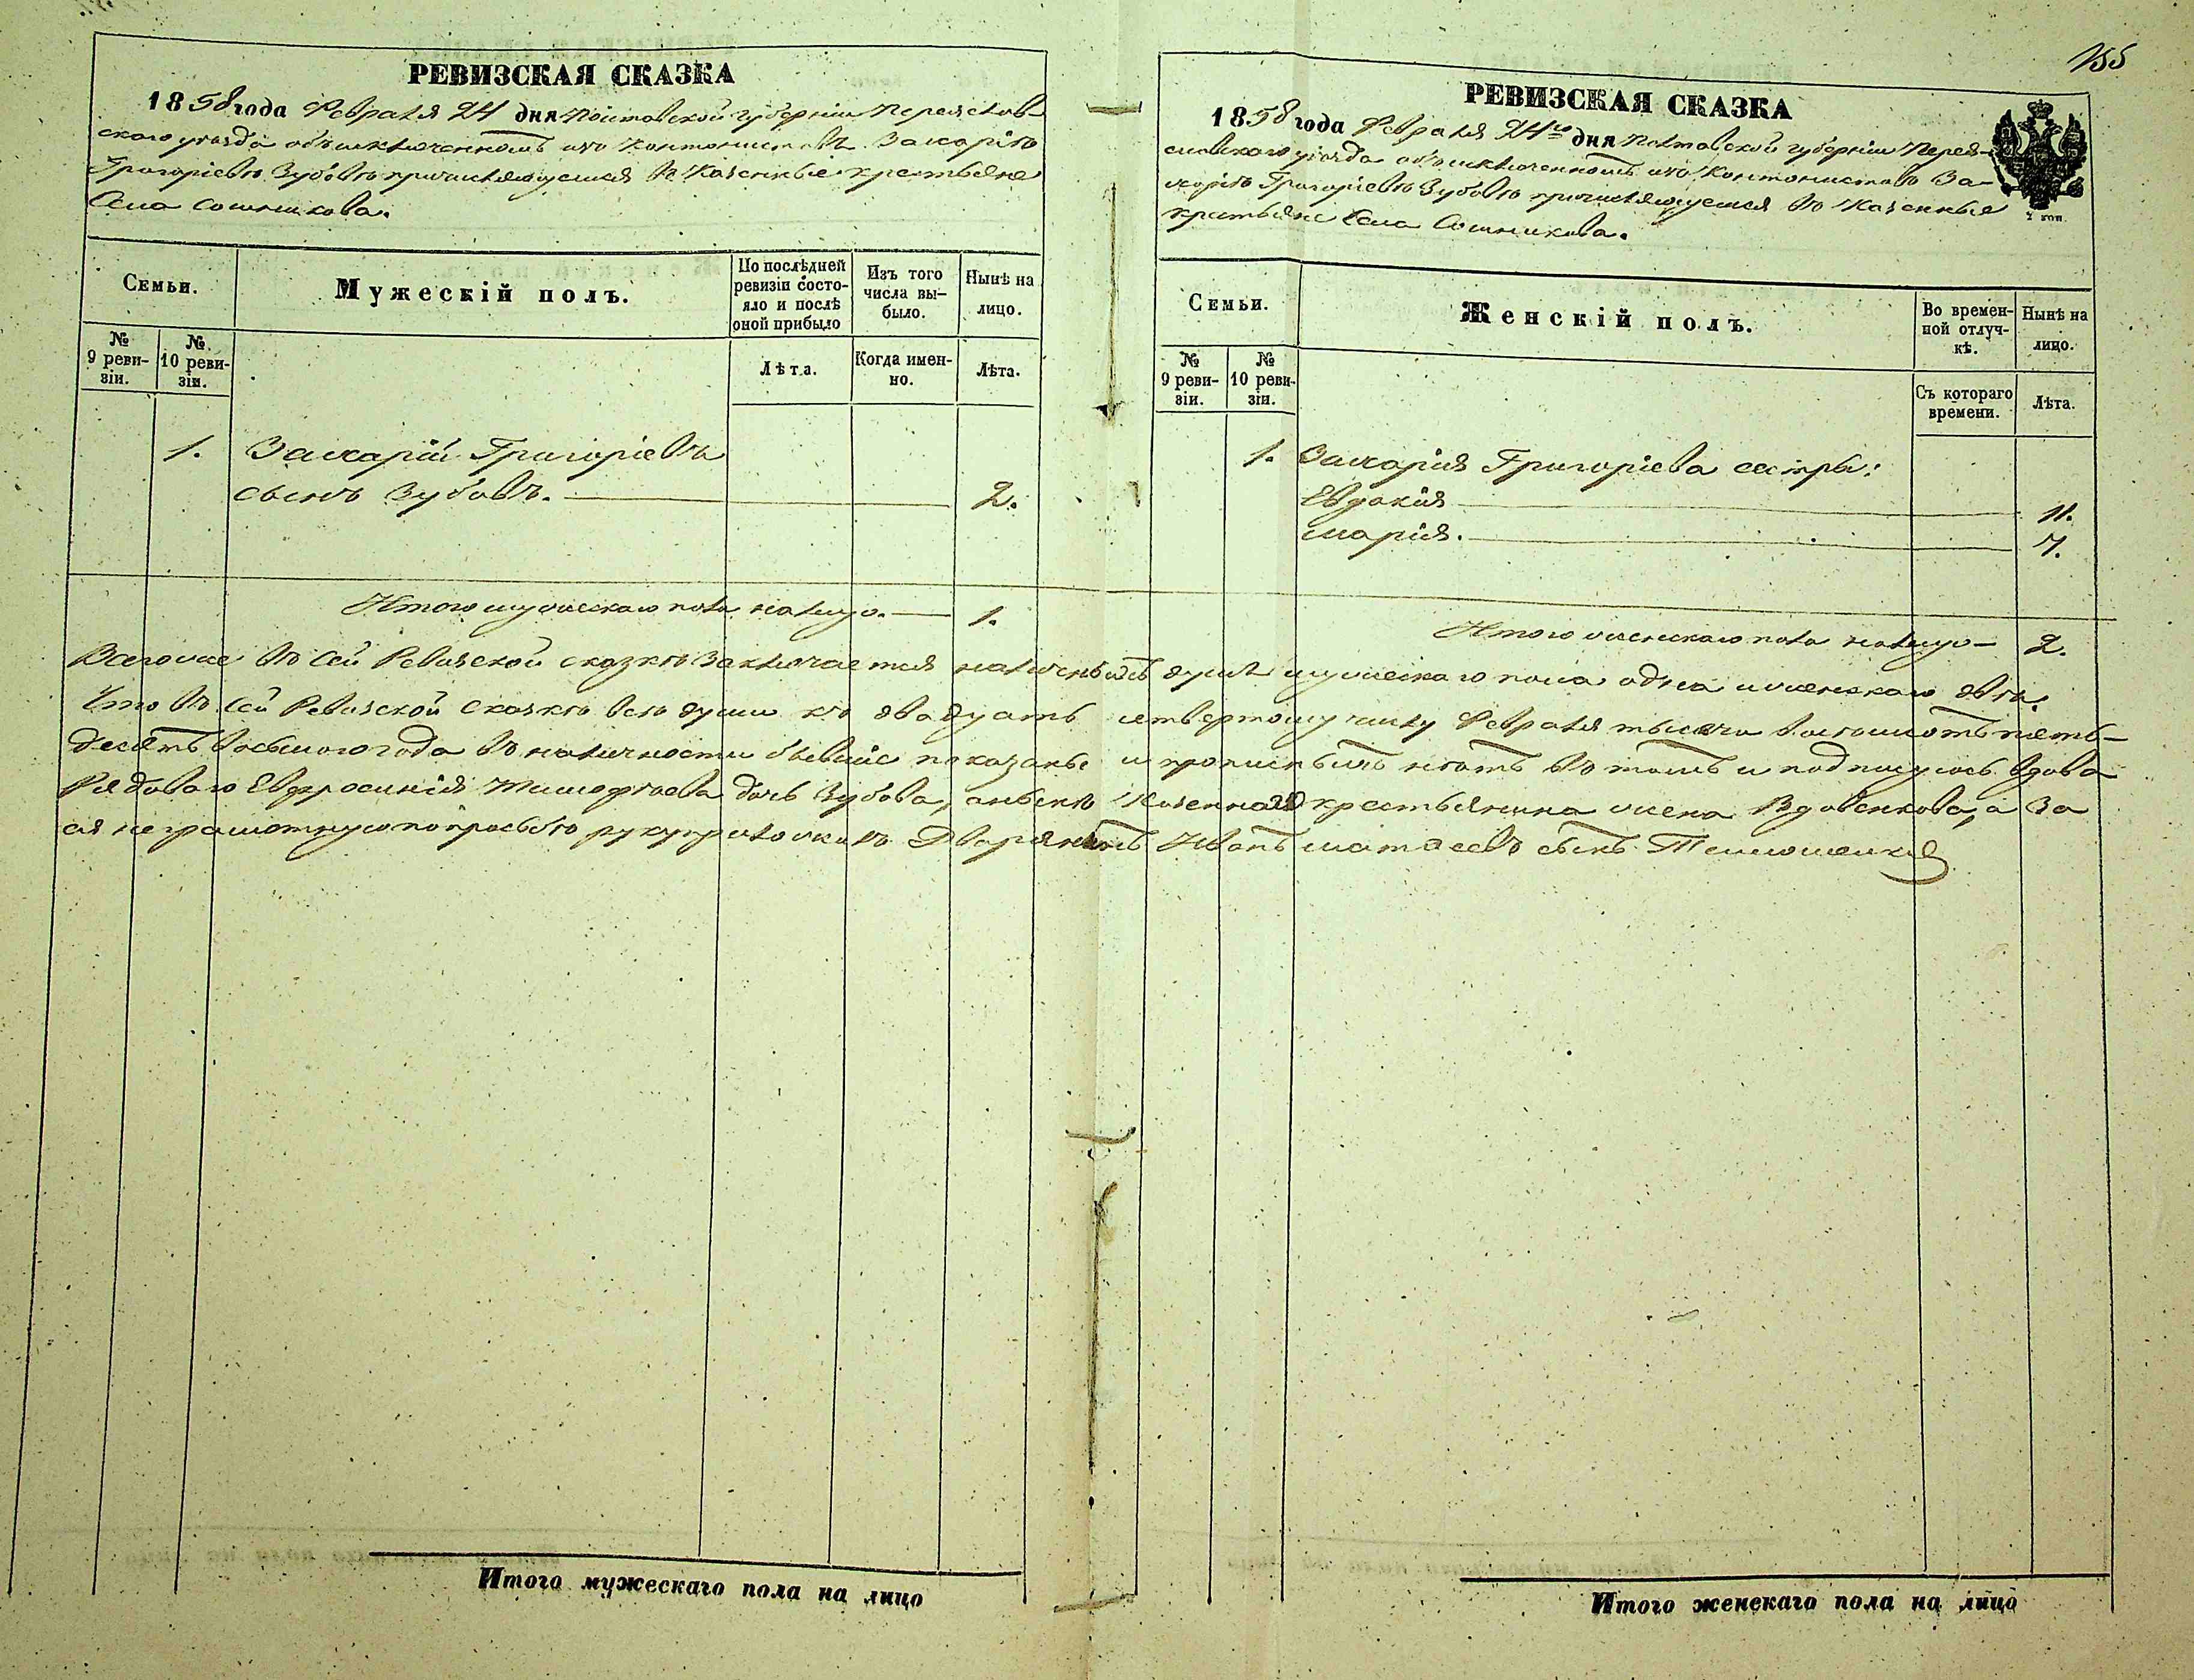 155
РЕВИЗСКАЯ СКАЗКА
1858 года Февраля 24 дня Полтавской губерніи Переяслав-
скаго уезда объ исключенномъ изъ Кантонистовъ Захаріѣ
Григоріевѣ Зубовѣ причисляющемся въ Казенные крестьяне
Села Сошникова.
Семьи.
Мужескій полъ.
По послѣдней ревизіи состо-
яло и послѣ
оной прибыло
Изъ того
числа вы-
было.
Нынѣ на
лицо.
№
9 реви-
зіи.
№
10 реви-
зіи.
Лѣта.
Когда имен-
но.
Лѣта.
1. Захарій Григоріевъ
сынъ Зубовъ. 2.
Итого мужескаго пола налицо. 1.
РЕВИЗСКАЯ СКАЗКА
1858 года Февраля 24го дня Полтавской губерніи Перея-
славскаго уезда объ исключенномъ изъ Кантонистовъ За-
харіѣ Григоріевѣ Зубовѣ причисляющемся въ Казенные
крестьяне Села Сошникова.
Семьи.
Женскій полъ.
Во времен-
ной отлуч-
кѣ.
Нынѣ на
лицо.
№
9 реви-
зіи.
№
10 реви-
зіи.
Съ котораго
времени.
Лѣта.
1. Захарія Григоріева сестры:
Евдокия 11.
Марія. 7.
Итого женскаго пола налицо 2.
Всего же въ сей Ревизской сказкѣ заключается наличныхъ душъ мужескаго пола одна и женскаго двѣ.
Что въ сей Ревизской Сказкѣ всѣ души къ двадцать четвертому числу Февраля тысяча восемьсотъ пять-
десятъ восьмого года въ наличности бывшіе показаны и прописныхъ нѣтъ въ томъ и подписуюсь вдова
Рядоваго Евфросинія Тимофѣева дочь Зубова, а нынѣ Казеннаго крестьянина жена Вдовенкова, а за
ея неграмотную по просьбѣ руку приложилъ Дворянинъ Иванъ Матвеевъ сынъ Тимошенко
Итого мужескаго пола на лицо
Итого женскаго пола на лицо